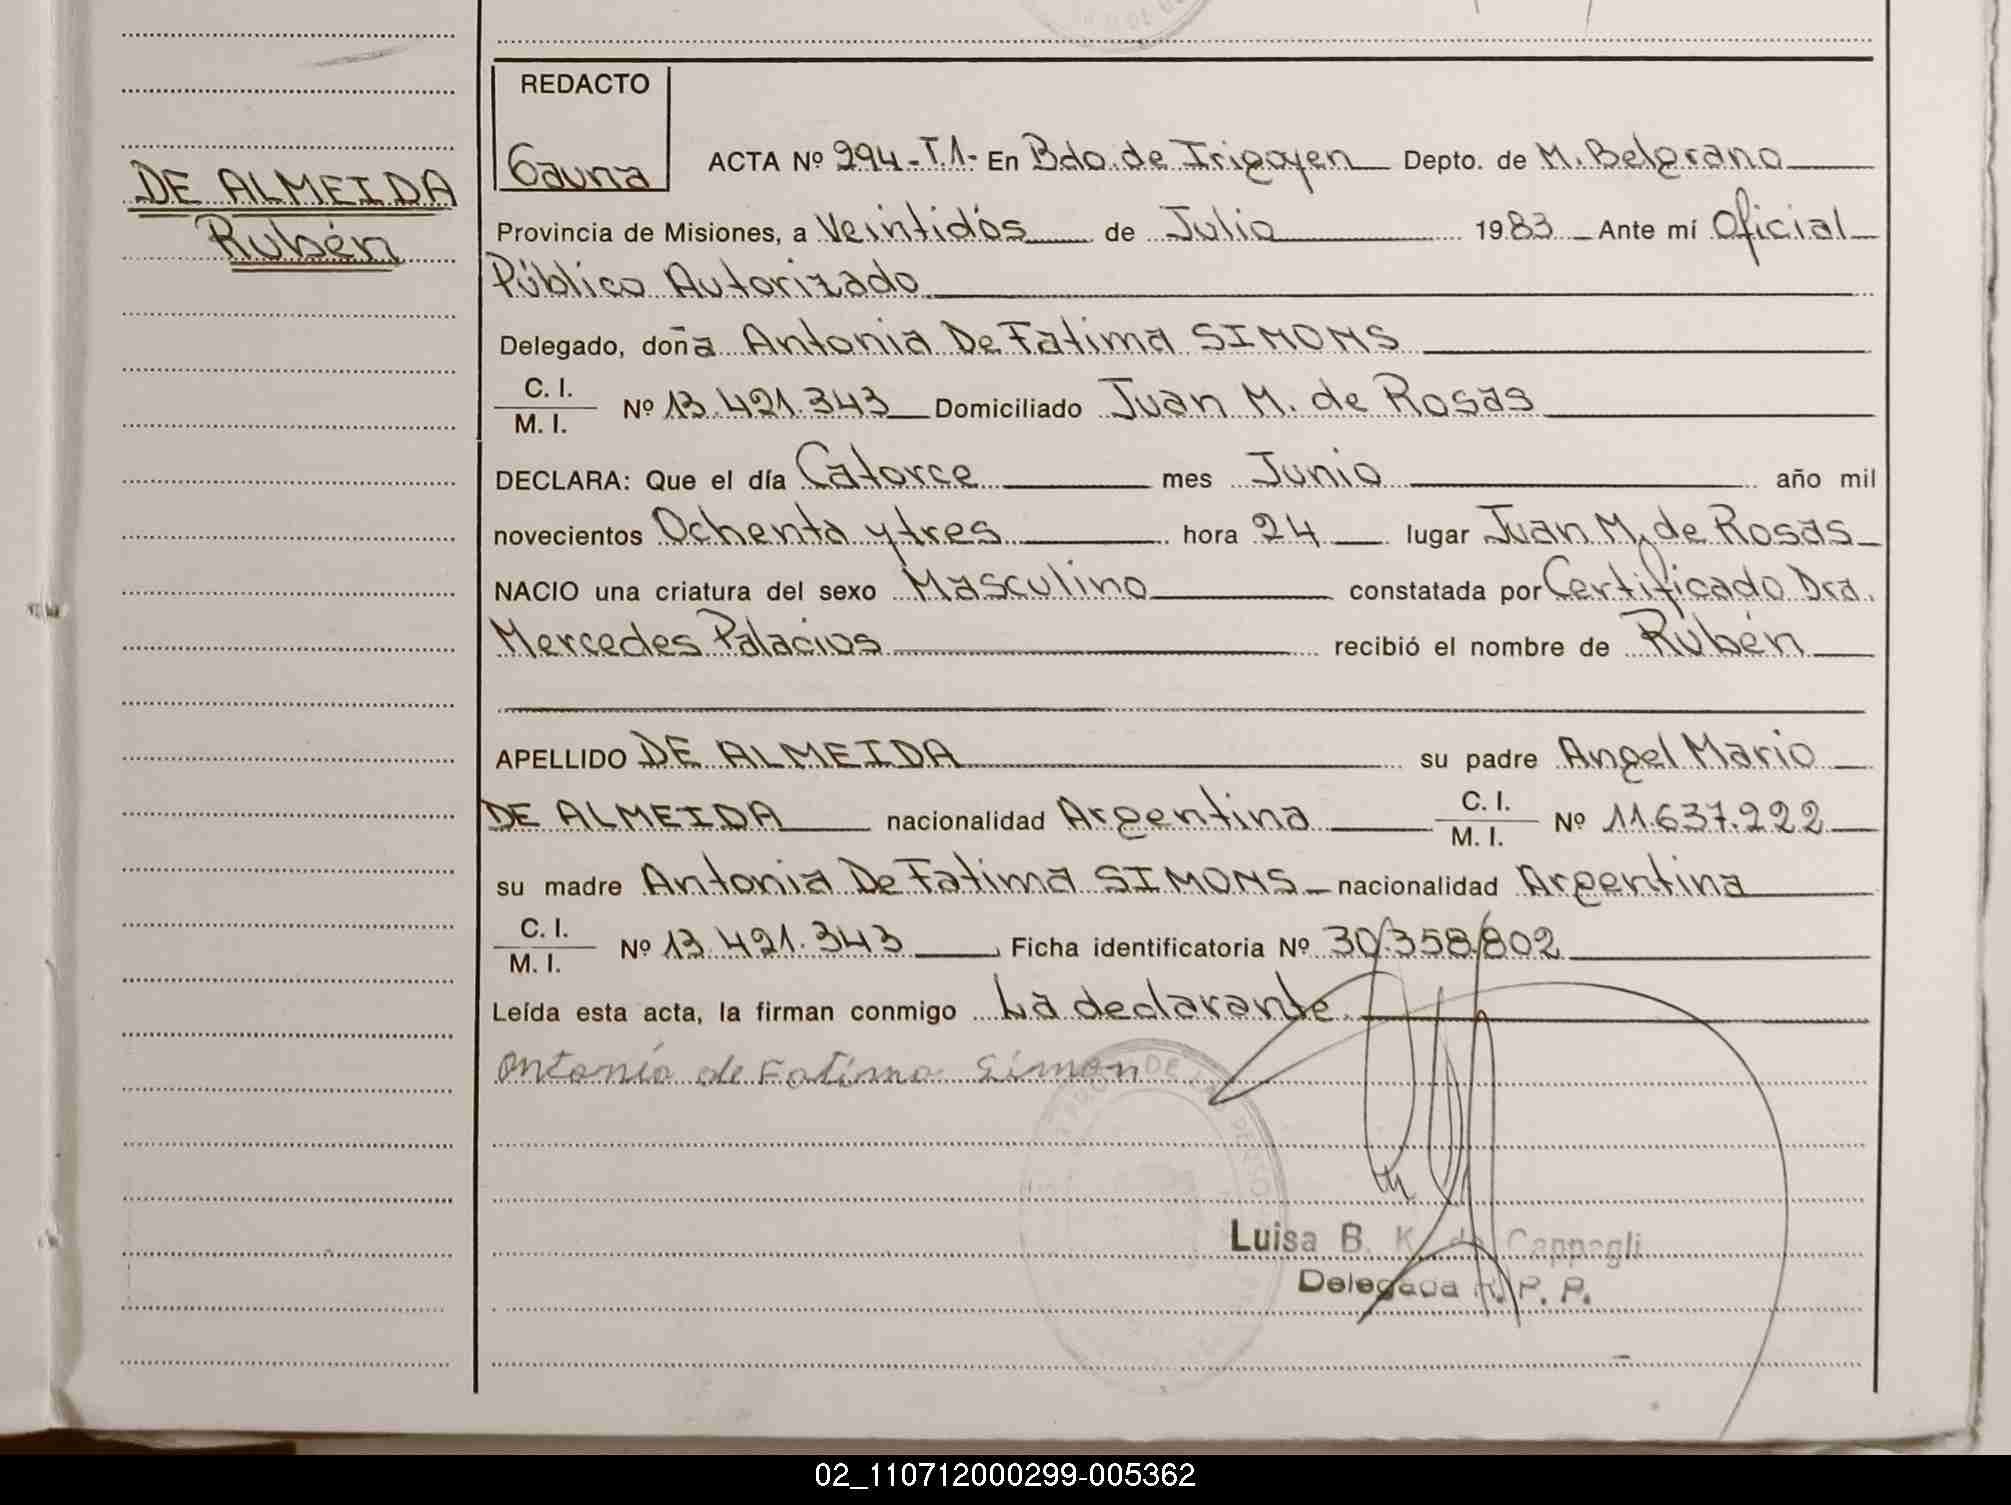 DE ALMEIDA
Rubén
REDACTO
Gauna
ACTA Nº 294-T.1- En Bdo. de Irigoyen Depto. de M. Belgrano
Provincia de Misiones, a Veintidós de Julio 1983 Ante mí Oficial
Público Autorizado
Delegado, doña Antonia De Fatima SIMONS
C. I.
M. I. Nº 13.421.343 Domiciliado Juan M. de Rosas
DECLARA: Que el día Catorce mes Junio año mil
novecientos Ochenta y tres hora 24 lugar Juan M. de Rosas
NACIO una criatura del sexo Masculino constatada por Certificado Dra.
Mercedes Palacios recibió el nombre de Rubén
APELLIDO DE ALMEIDA su padre Angel Mario
DE ALMEIDA nacionalidad Argentina C. I. M. I. Nº 11.637.222
su madre Antonia De Fatima SIMONS nacionalidad Argentina
C. I.
M. I. Nº 13.421.343 Ficha identificatoria Nº 30.358.802
Leída esta acta, la firman conmigo La declarante
Antonia de Fatima Simon
Luisa B. K. de Cappagli
Delegada R. P. P.
02_110712000299-005362